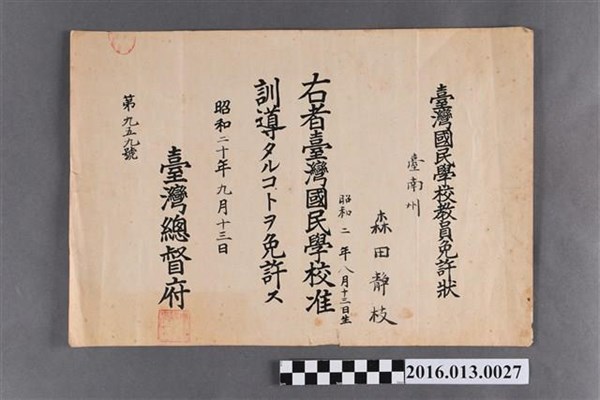 臺灣國民學校教員免許狀
臺南州
森田靜枝
昭和二年八月十三日生
右者臺灣國民學校准
訓導タルコトヲ免許ス
昭和二十年九月十三日
臺灣總督府
第九五九號
2016.013.0027